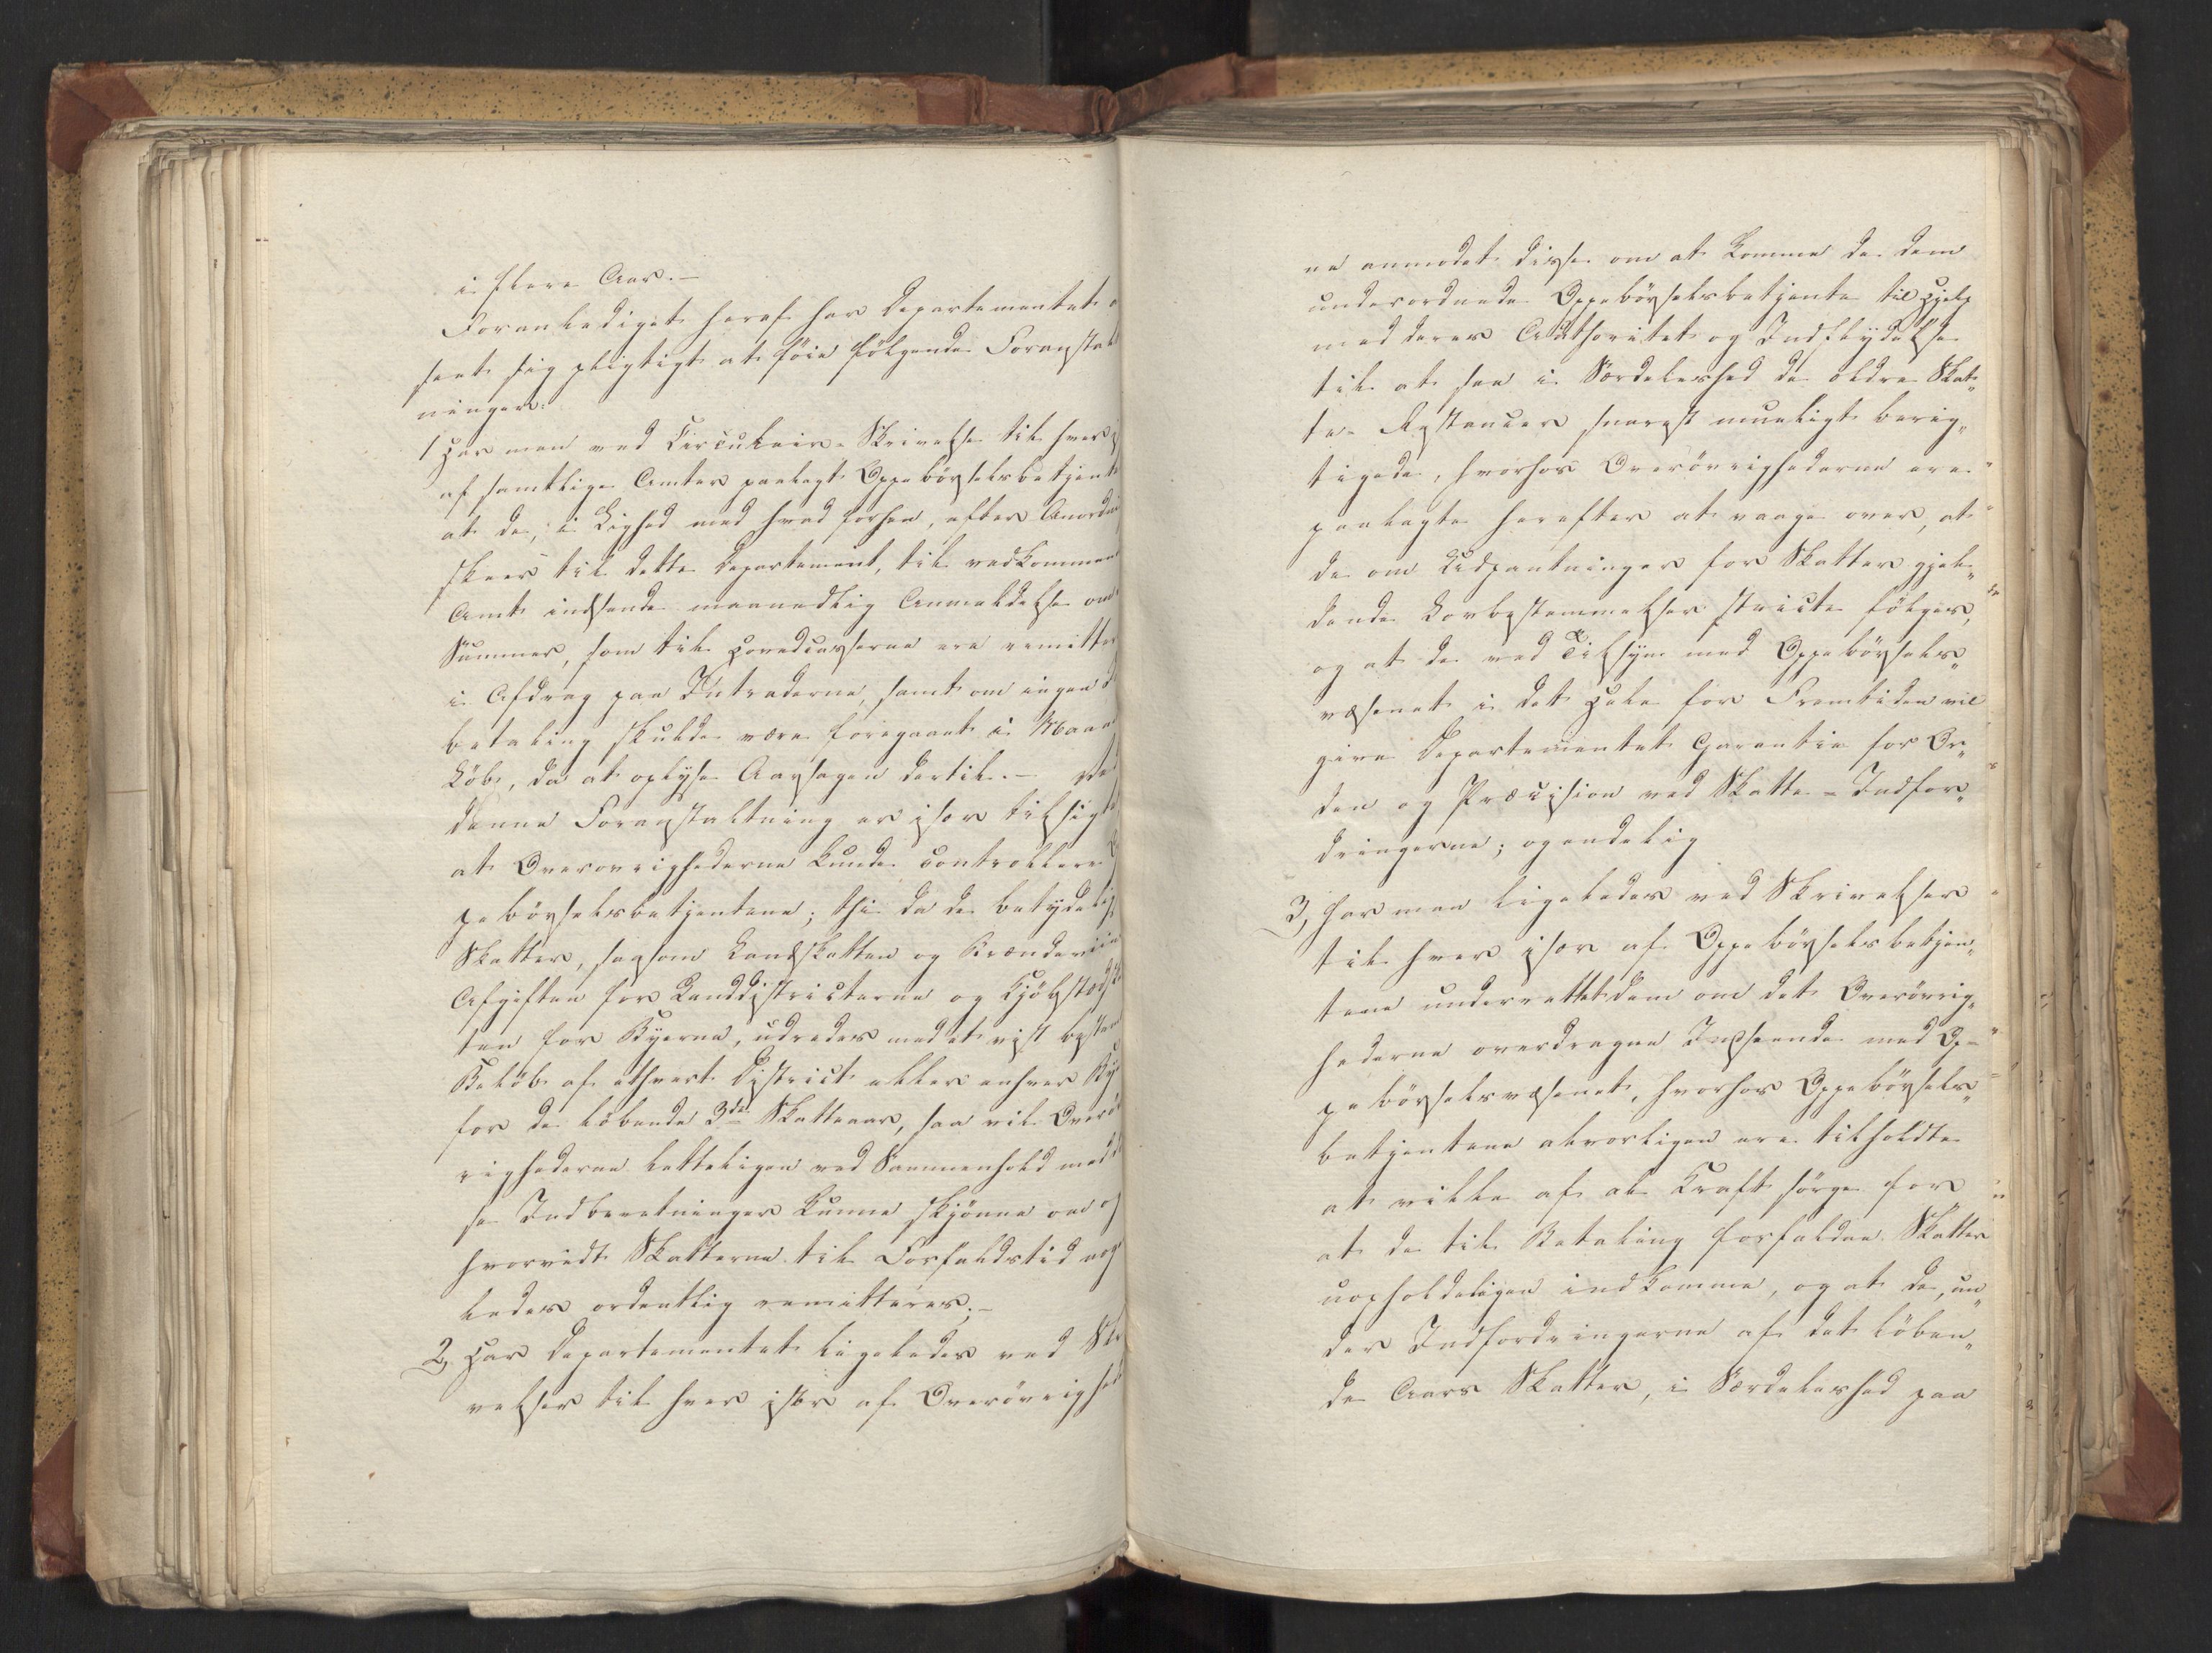 i flere Aar. –
Foranlediget heraf har Departementet
seet sig pligtigt at föie fölgende Foranstal
ninger:
1 Har man ved Circulair-Skrivelse til hver
af samtlige Amter paalagt Oppebörselsbetjente
at de, i Lighed med hvad forhen, efter Anord
skeer til dette Departement, til vedkommen
Amt indsende maanedlig Anmeldelse om
Summer, som til Hovedcasserne ere remitter
i Afdrag paa Intraderne, samt om ingen
betaling skulde være foregaaet i Maan
Löb, da at oplyse Aarsagen dertil. – Ved
denne Foranstaltning er især tilsigt
at Overövrighederne kunde controllere
pebörselsbetjentene; thi da de betydelig
Skatter, saasom Landskatten og Brændeviin
Afgiften for Landdistricterne og Kjöbstadsk
ten for Byerne, udredes med et vist bestem
Belöb af ethvert District eller enhver By
for de löbende 3de Skatteaar, saa vil Overö
righederne letteligen ved Sammenhold med
se Indberetninger kunne skjönne om og
hvorvidt Skatterne til Forfaldstid
ledes ordentlig remitteres; –
2, Har Departementet ligeledes ved Skr
velser til hver især af Overövrighed
ne anmodet disse om at komme de dem
underordnede Oppebörselsbetjente til Hjelp
med deres Authoritet og Indflydelse
til at faa i Særdeleshed de ældre Skat„
te-Restancer snarest mueligt berig„
tigede, hvorhos Overövrighederne ere
paalagte herefter at vaage over, at
de om Udpantninger for Skatter gjel„
dende Lovbestemmelser stricte fölges,
og at de ved Tilsyn med Oppebörsels„
væsenet i det Hele for Fremtiden vil
give Departementet Garantie for Or„
den og Præcision ved Skatte-Indfor„
dringerne; og endelig
3, har man ligeledes ved Skrivelser
til hver især af Oppebörselsbetjen„
tene underrettet dem om det Overövrig„
hederne overdragne Indseende med Op-
pebörselsvæsenet, hvorhos Oppebörsels„
betjentene alvorligen ere tilholdte
at ville af al Kraft sörge for
at de til Betaling forfaldne Skatter
uopholdeligen indkomme, og at de, un„
der Indfordringerne af det löben„
de Aars Skatter, i Særdeleshed paa